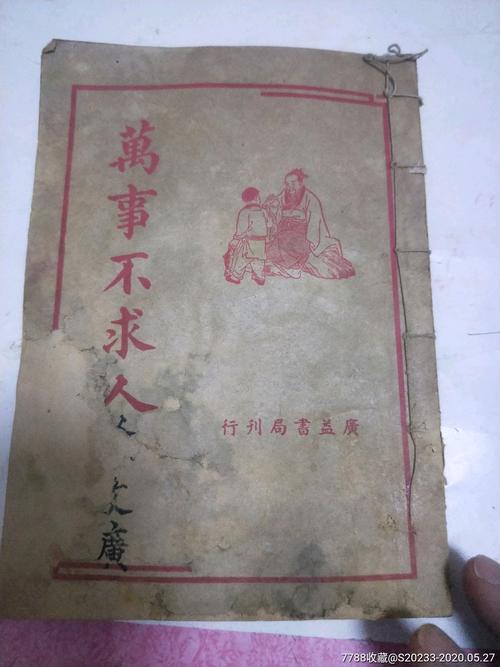 萬事不求人
廣益書局刊行
文廣
7788收藏@S20233-2020.05.27